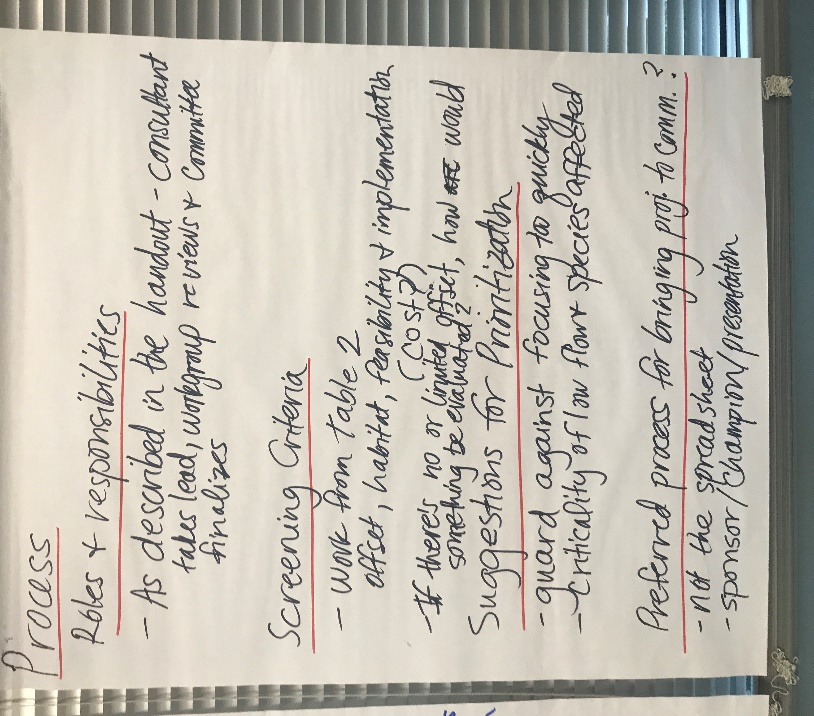 Process
Roles & responsibilities
- As described in the handout - consultant
takes lead, workgroup reviews & Committee
finalizes
Screening Criteria
- Work from Table 2
offset, habitat, feasibility & implementation
(cost?)
- If there's no or limited offset, how would
something be evaluated?
Suggestions for Prioritization
- guard against focusing too quickly
- Criticality of low flow & species affected
Preferred process for bringing proj. to Comm.?
- not the spreadsheet
- sponsor/champion/presentation